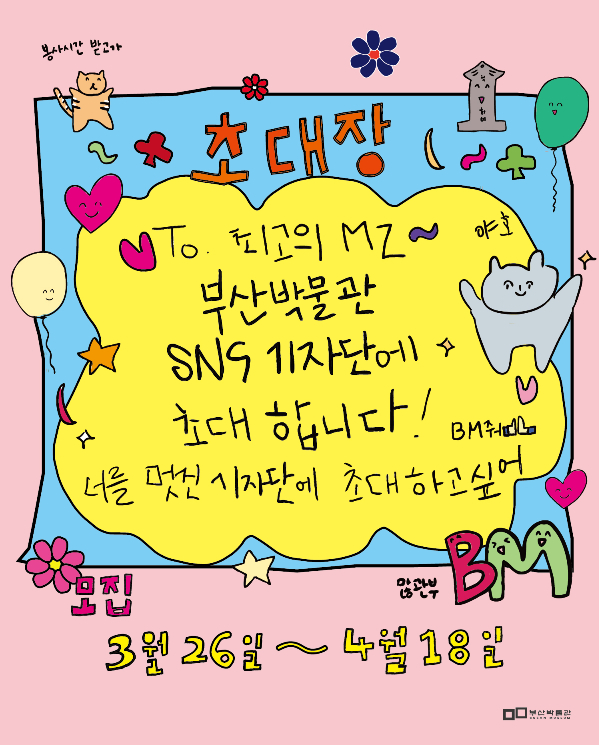 봉사시간 받고가
초대장
To. 최고의 MZ~
야호
부산박물관
SNS 기자단에
초대합니다!
BM줘
너를 멋진 기자단에 초대하고싶어
많관부
BM
모집
3월 26일 ~ 4월 18일
부산박물관
BUSAN MUSEUM